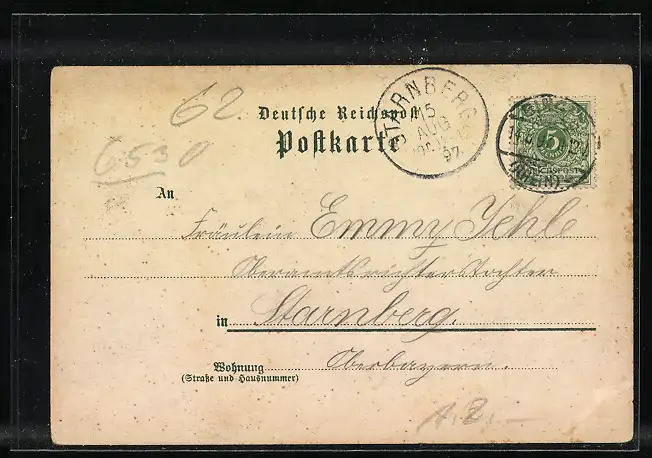 62.
6530
Deutsche Reichspost
Postkarte
STARNBERG
15
AUG
97
5
REICHSPOST
An
Fräulein Emmy Jehle
Oberamtsrichterstochter
in Starnberg.
Wohnung Oberbayern.
(Straße und Hausnummer)
A.2.-